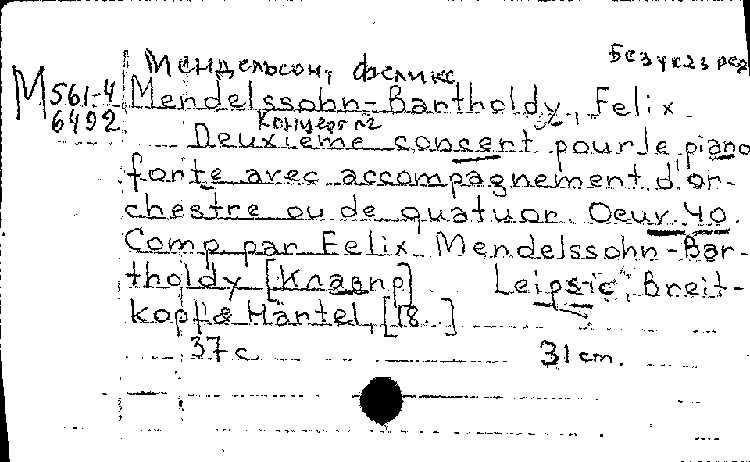 Без указ ред
Мендельсон, Феликс
М 561-4
6492
Mendelssohn-Bartholdy, Felix
Концерт №2
Deuxième concert pour le piano
forte avec accompagnement d'or-
chestre ou de quatuor. Oeuv. 40.
Comp par Felix Mendelssohn-Bar-
tholdy [Клавир] Leipsic, Breit-
kopf & Härtel, [18..]
37 с. 31 cm.